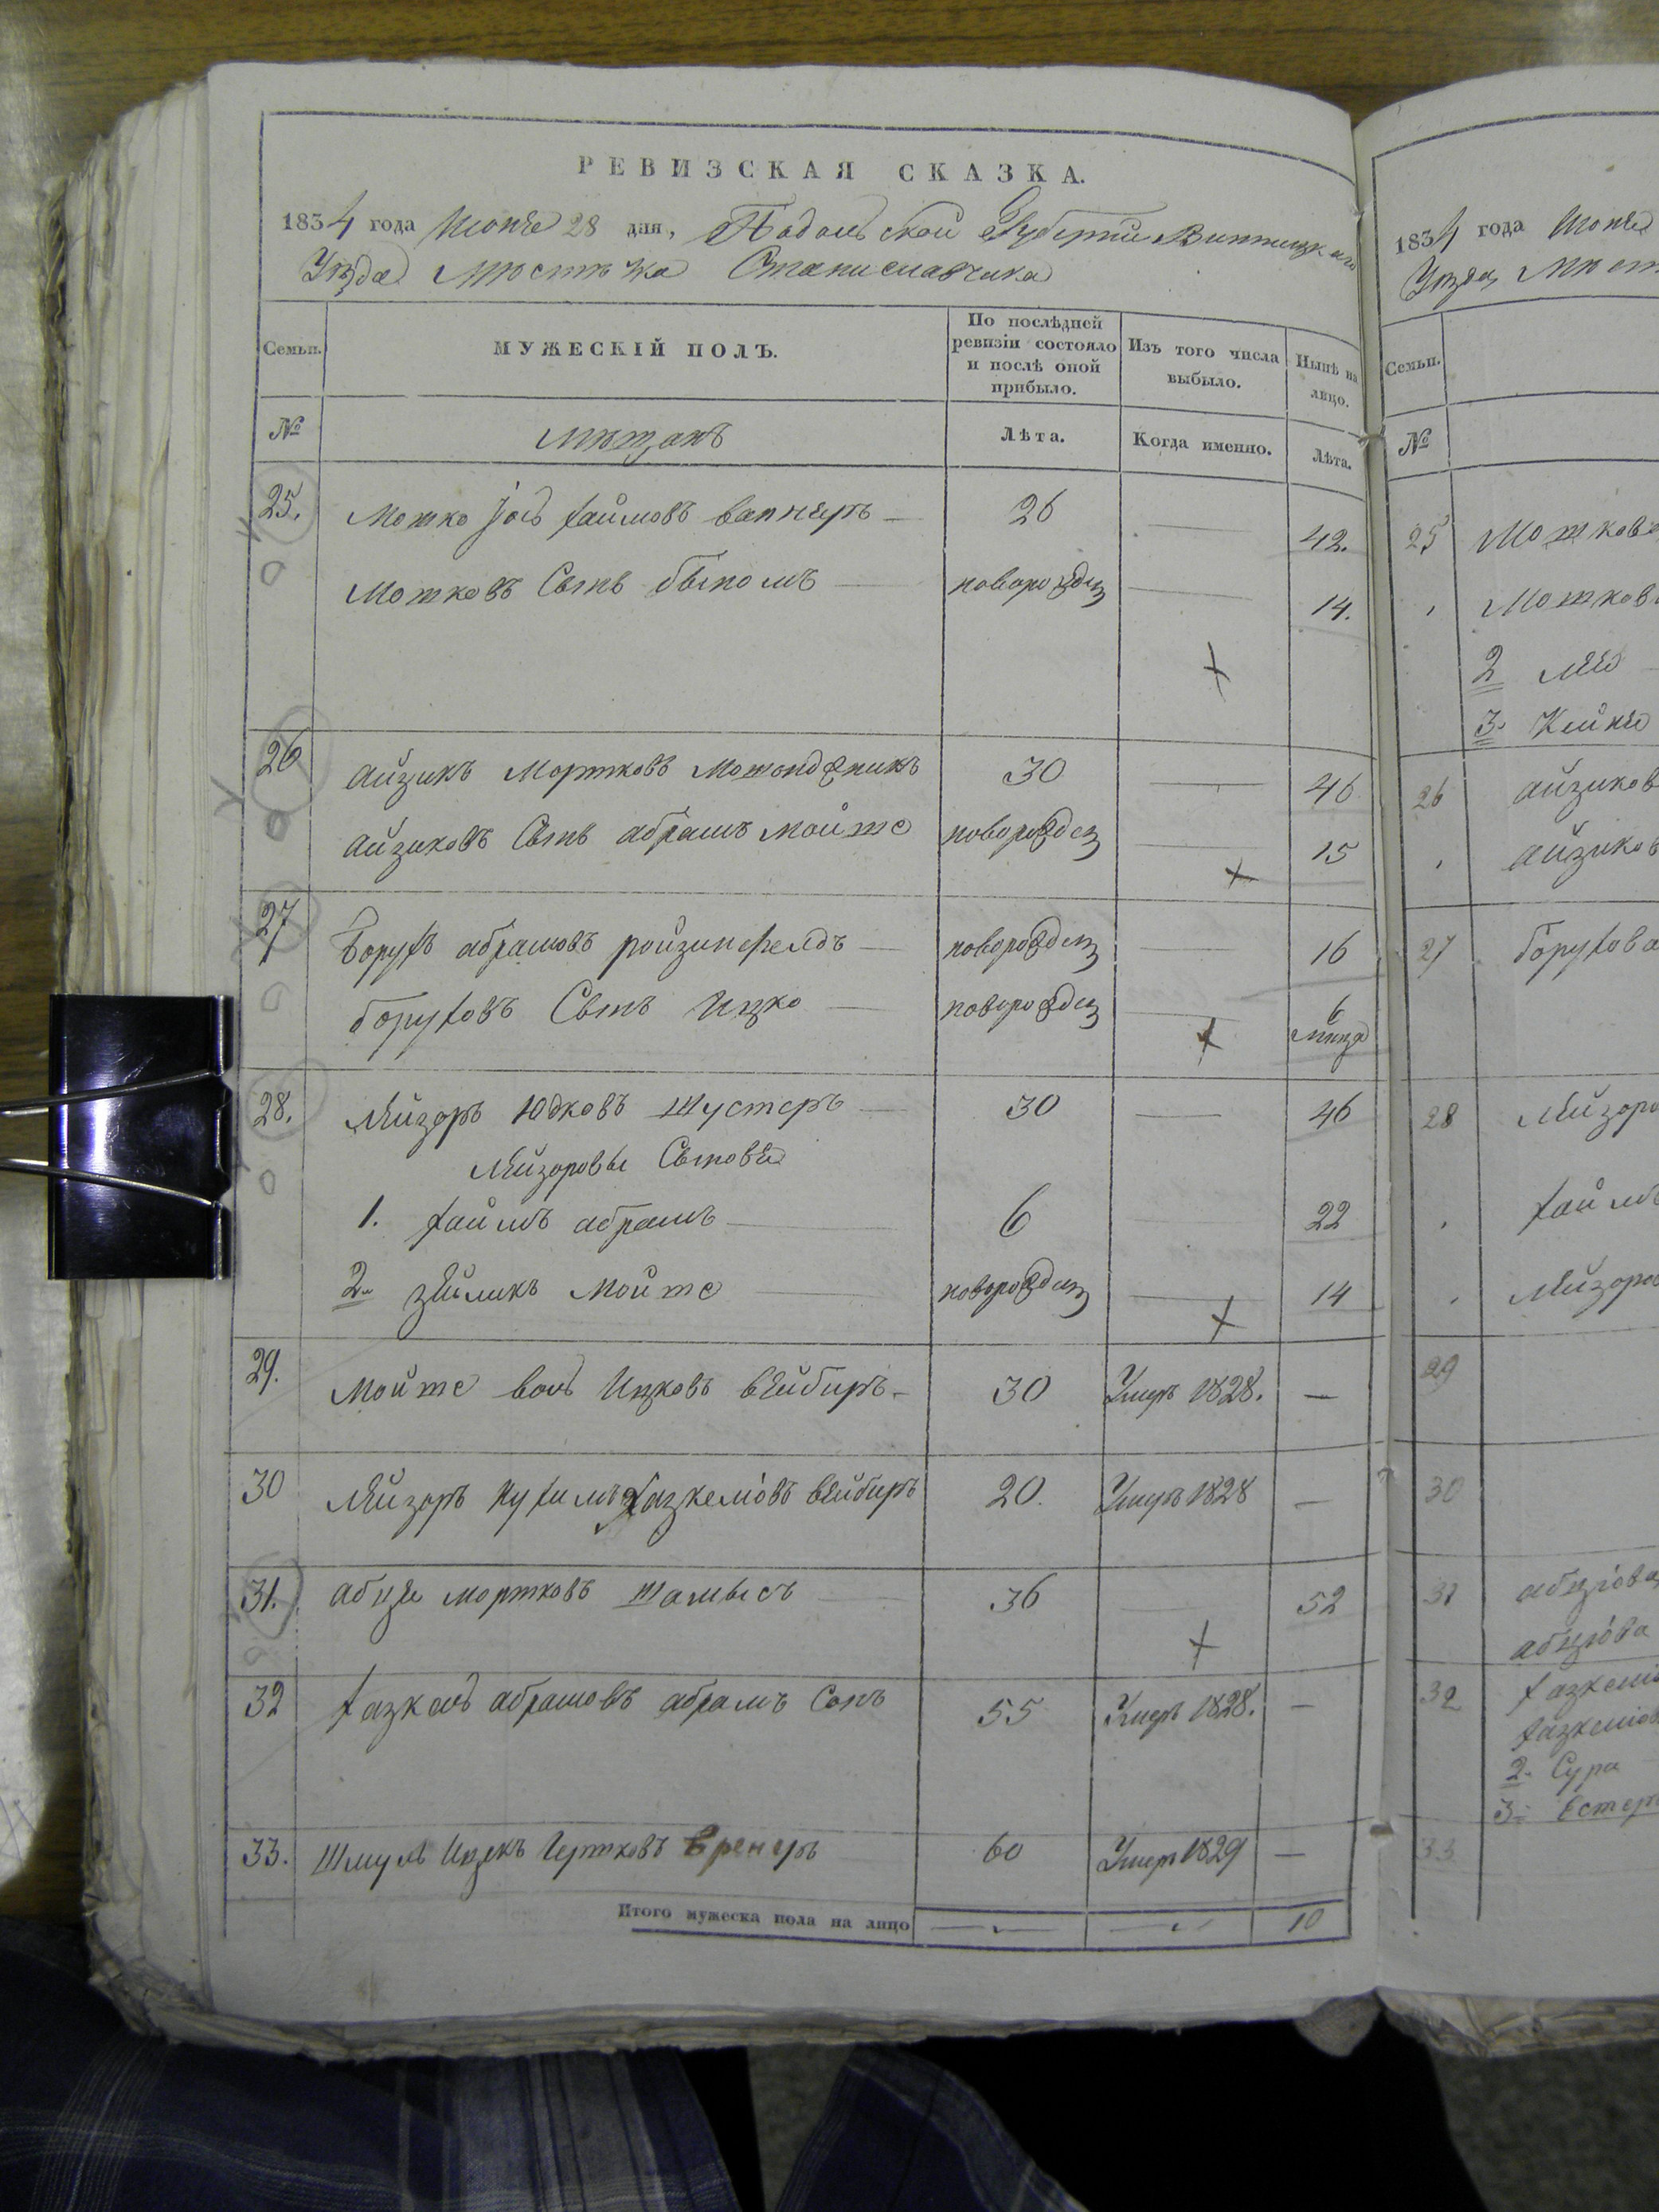 РЕВИЗСКАЯ СКАЗКА.
1834 года Июня 28 дня, Подольской Губернии Винницкаго
Уѣзда Мѣстечка Станиславчика
Семьи.
МУЖЕСКІЙ ПОЛЪ.
По послѣдней ревизіи состояло и послѣ оной прибыло.
Изъ того числа выбыло.
Нынѣ на лицо.
№
Мѣщанъ
Лѣта.
Когда именно.
Лѣта.
25. Мотко Хаимовъ 26 — 42.
Мотковъ Сынъ новорожден — 14.
26 Айзикъ Мортковъ 30 — 46
Айзиковъ Сынъ Абрамъ Мойше новорожден — 15
27 Борухъ Абрамовъ Ройзинфелдъ — новорожден — 16
Боруховъ Сынъ Ицко — новорожден — 6 мѣсяца
28. Лейзоръ Юдковъ Шустеръ — 30 — 46
Лейзоровы Сыновья
1. Хаимъ Абрамъ — 6 22
2. Зейликъ Мойше — новорожден — 14
29. Мойше Волъ Ицковъ Вейберъ — 30 Умеръ 1828. —
30 Лейзоръ Нухимъ Хазкелювъ Вейберъ 20. Умеръ 1828 —
31. Мортковъ Шамысъ — 36 — 52
32 Хазкель Абрамовъ Абрамъ Сонъ 55 Умеръ 1828. —
33. Шмуль Ицекъ 60 Умеръ 1829 —
Итого мужеска пола на лицо — — 10
1834 года Июня
Уѣзда, Мѣст
Семьи.
№
25 Моткова
Моткова
2
3. Кейня
26 Айзиков
Айзиков
27 Борухова
28 Лейзоро
Хаимъ
Лейзоров
29
30
31
32
2. Сура
3. Естер
33